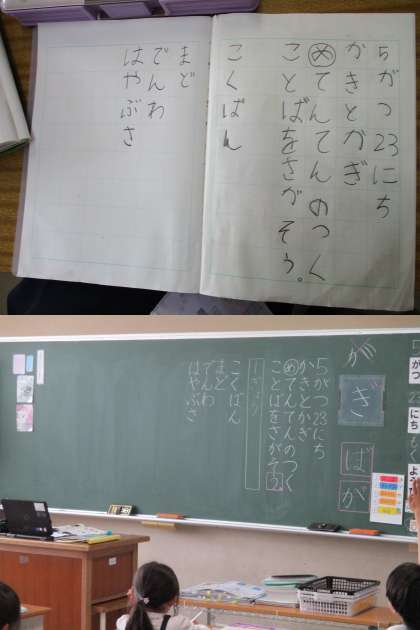 5がつ23にち
かきとかぎ
めてんてんのつく
ことばをさがそう。
こくばん
まど
でんわ
はやぶさ
が
ぎ
ば
が
5がつ23にち
かきとかぎ
めてんてんのつく
ことばをさがそう
こくばん
まど
でんわ
はやぶさ
5
がつ
23
にち